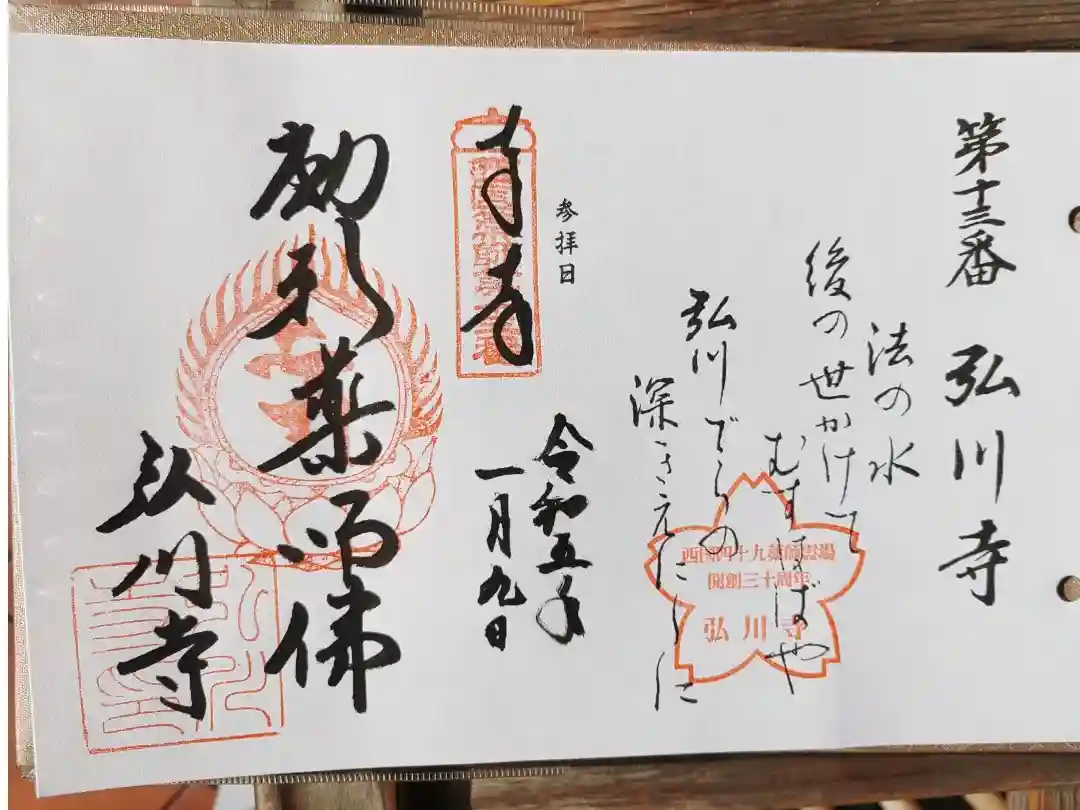 第十三番 弘川寺
法の水
後の世かけて
むすばばや
弘川でらの
深きえにしに
西国四十九薬師霊場
開創三十周年
弘川寺
参拝日
令和五年
一月九日
薬師佛
弘川寺